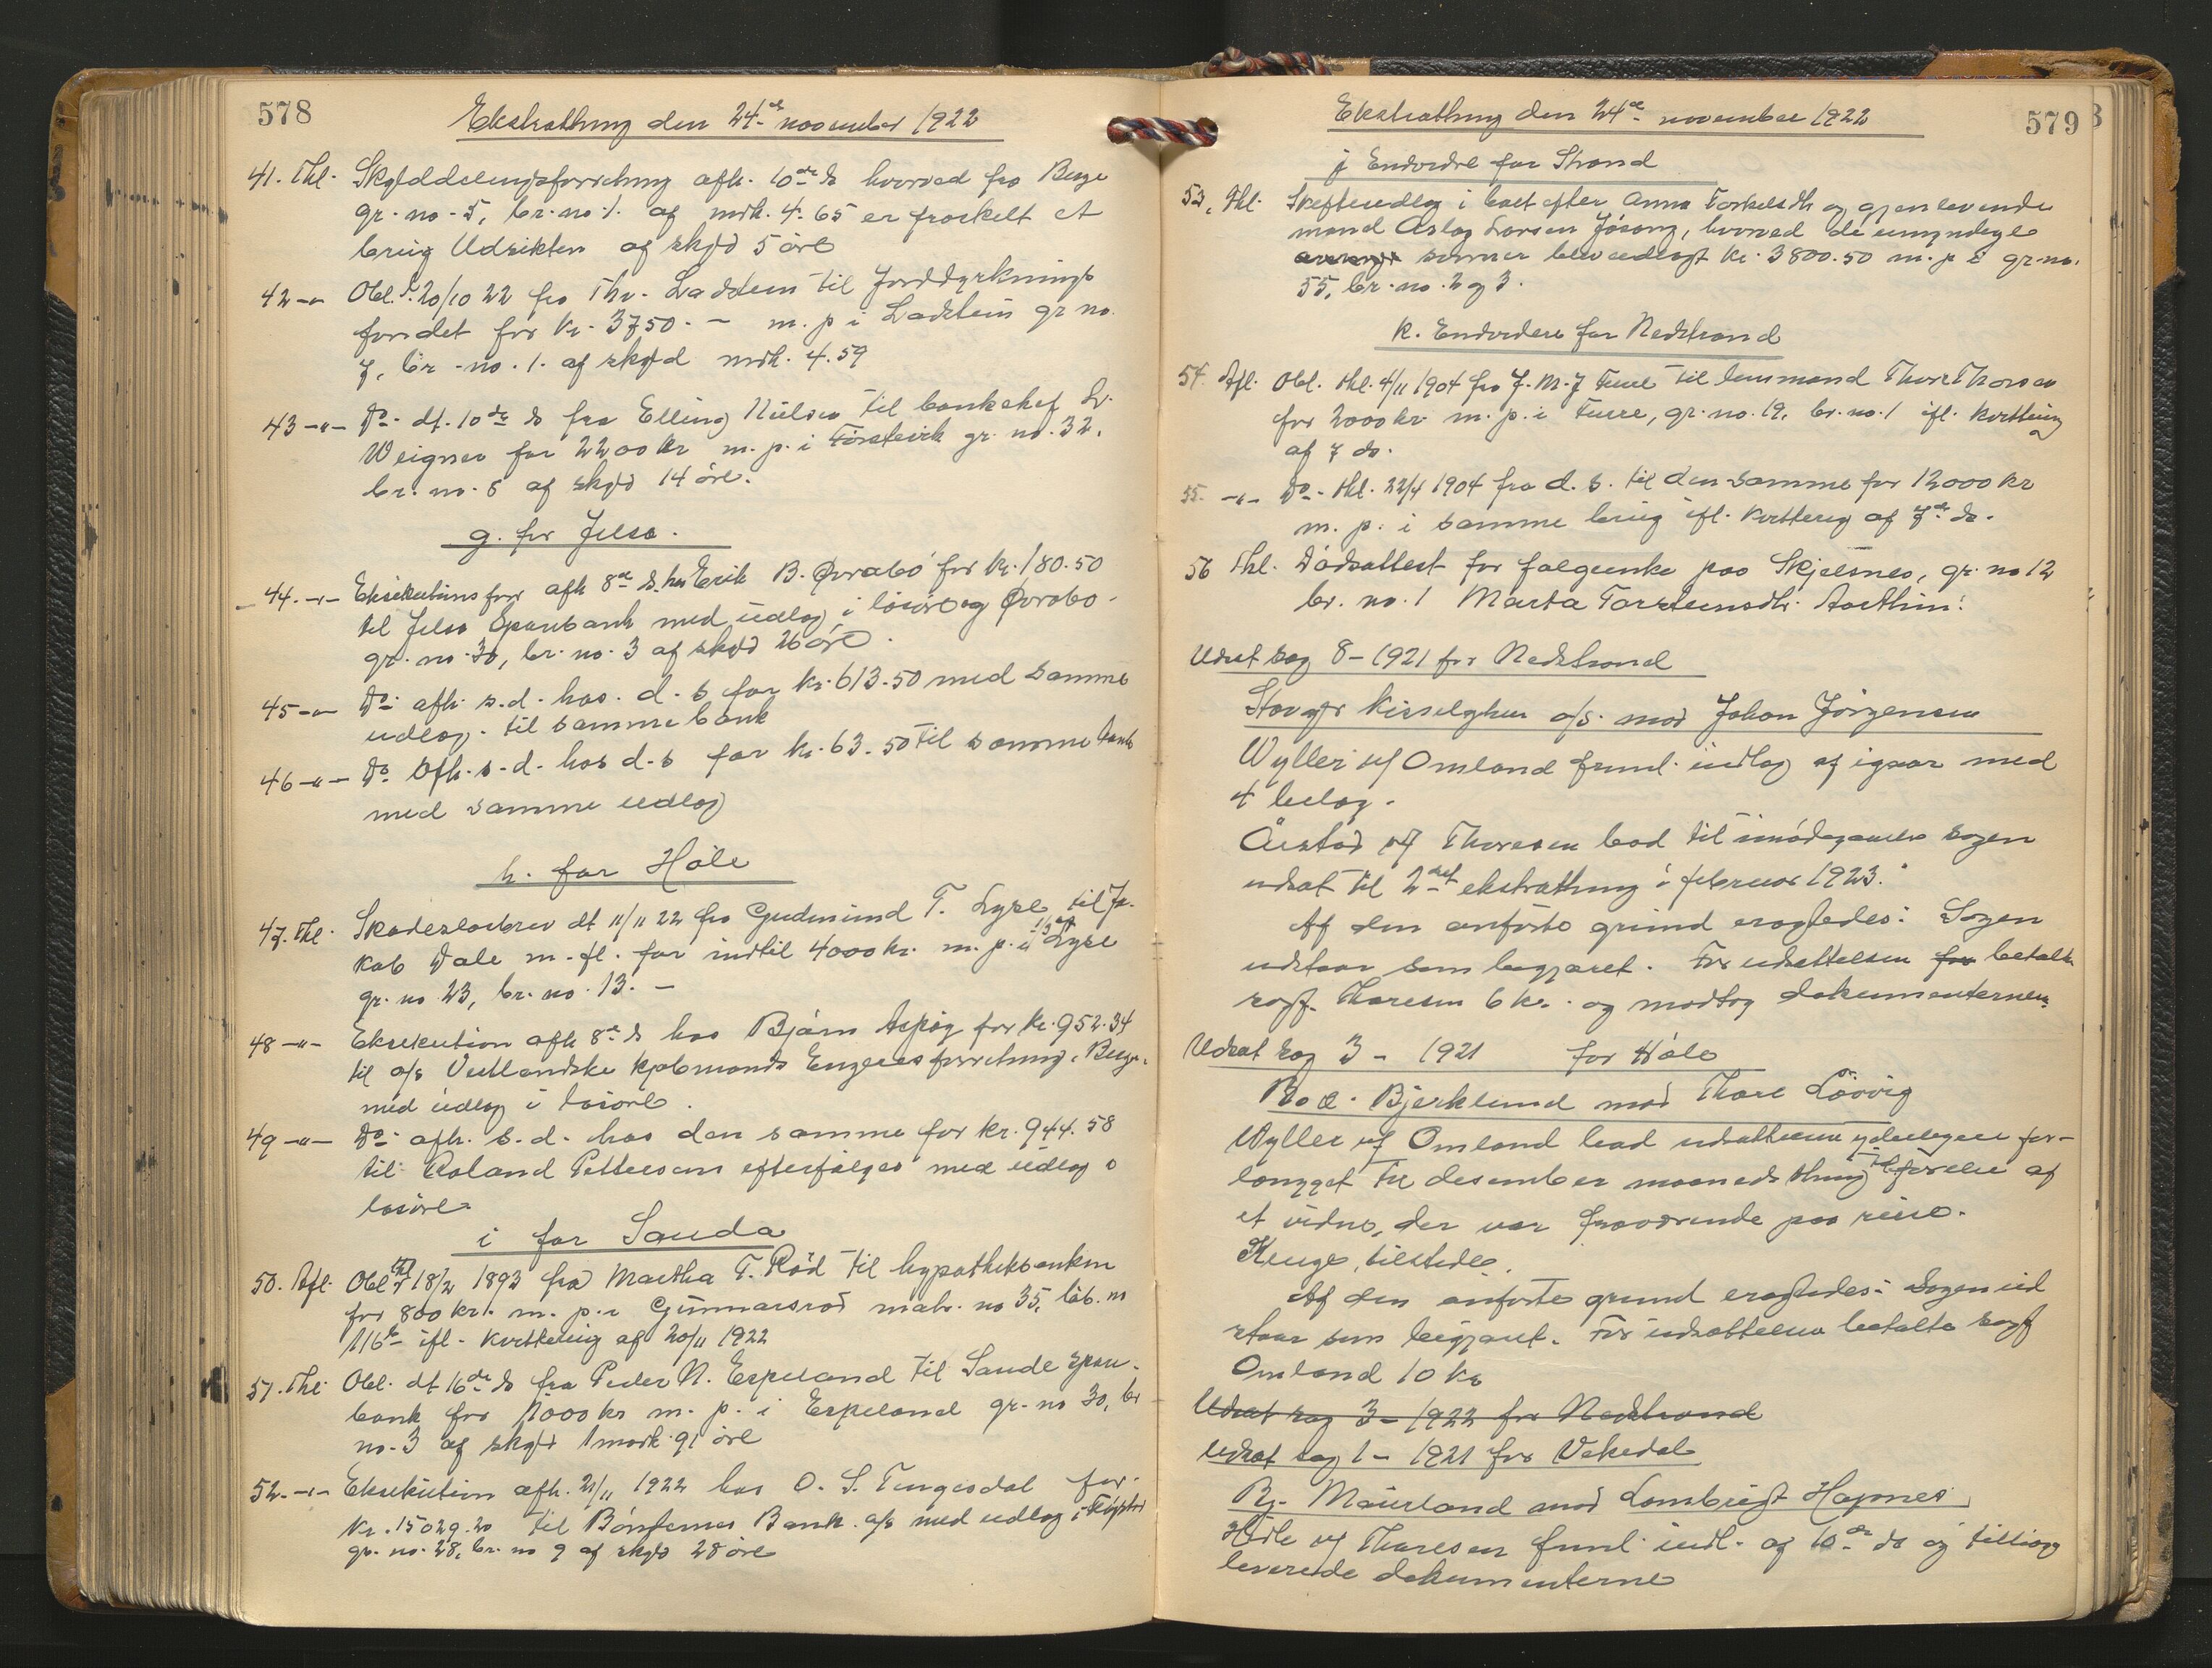 578
Ekstrathing den 24de november 1922
41. Thl. Skylddelingsforretning afh. 10de ds hvorved fra Berge
gr. no. 5, br. no. 1. af mrk. 4.65 er fraskilt et
brug Udsikten af skyld 5 øre
42 -"- Obl. d. 20/10 22 fra Thv. Ladstein til Jorddyrknings
fondet for kr. 3750.- m. p. i Ladstein gr. no.
7, br. no. 1. af skyld mrk. 4.59
43 -"- Do. dt. 10de ds fra Elling Nielsen til banksjef L.
Weigner for 2200 kr m. p. i Førstevik gr. no. 32,
br. no. 8 af skyld 14 øre.
g. for Jelsa.
44. -"- Eksekutionsforr afh 8de ds. hos Erik B. Øvrabø for kr. 180.50
til Jelsa Sparebank med udlæg i løsøre og Øvrabø
gr. no. 30, br. no. 3 af skyld 26 øre.
45 -"- Do. afh. s. d. hos. d. s for kr. 613.50 med samme
udlæg. til samme bank
46 -"- Do. Afh. s. d. hos d. s for kr. 63.50 til samme bank
med samme udlæg
h. for Høle
47. Thl. Skadesløsbrev dt 11/11 22 fra Gudmund T. Lyse til Ja-
kob Dale m. fl. for indtil 4000 kr. m. p. i Lyse
gr. no 23, br. no. 13. -
48 -"- Eksekution afh 8de ds hos Bjørn Aspøy for kr. 952.34
til a/s Vestlandske Kjøbmands Engrosforretning, Berge.
med udlæg i løsøre.
49 -"- Do. afh. s. d. hos den samme for kr. 944.58
til Roland Pettersens efterfølger med udlæg i
løsøre
i for Sauda
50. Afl. Obl. thl 18/2 1893 fra Martha T. Rød til hypothekbanken
for 800 kr. m. p. i Gunnarsrød matr. no 35, løb. no
116b ifl. kvittering af 20/11 1922
51. Thl. Obl. dt 16de ds fra Peder N. Espeland til Saude spare-
bank for 1000 kr m. p. i Espeland gr. no 30, br
no. 3 af skyld 1 mark 91 øre
52. -"- Eksekution afh. 21/11 1922 hos O. S. Tengesdal for
kr. 15029.20 til Bøndernes Bank a/s med udlæg i
gr. no. 28, br. no 9 af skyld 28 øre
579
Ekstrathing den 24de november 1922
j Endvidre for Strand
53, Thl. Skifteudlæg i boet efter Anna Torkelsdtr og gjenlevende
mand Aslag Larsen Jøsang, hvorved de umyndige
sønner blev udlagt kr. 3800.50 m. p. i gr. no.
55, br. no. 2 og 3.
k. Endvidere for Nedstrand
54. Afl. Obl. thl. 4/11 1904 fra J. M. J Furre til lensmand Thore Thorsen
for 2000 kr. m. p. i Furre, gr. no. 19, br. no. 1 ifl. kvittering
af 7 ds.
55. -"- Do. thl. 22/4 1904 fra d. s. til den samme for 12000 kr
m. p. i samme brug ifl. kvittering af 7de ds.
56 Thl. Dødsattest for følgeenke paa Skjelsnes, gr. no 12
br. no. 1 Marta Torsteinsdtr.
Udsat sag 8 - 1921 for Nedstrand
Stavgr Kisselghur a/s. mod Johan Jørgensen
Wyller v/ Omland freml. indlæg af igaar med
4 bilag.
Aarstad v/ Thoresen bad til imødegaaelse sagen
udsat til 2det ekstrathing i februar 1923.
Af den anførte grund eragtedes: Sagen
udstaar som begjæret. For udsettelsen for betalte
sagf. Thoresen 6 kr. og modtog dokumenterne.
Udsat sag 3 - 1921 for Høle
Boe. Bjerklund mod Thore Løvvig
Wyller v/ Omland bad udsættelsen yderligere for-
længet til desember maaneds thing til førelse af
et vidne, der var fraværende paa reise.
Kluge, tilstede.
Af den anførte grund eragtedes: Sagen ud
staar som begjæret. For udsættelsen betalte sagf
Omland 10 kr
Udsat sag 3 - 1922 for Nedstrand
Udsat sag 1 - 1921 for Vikedal
Bj. Mæurland mod Lambregt Hapnes
Hidle v/ Thoresen freml. indl. af 10de ds og
leverede dokumenterne